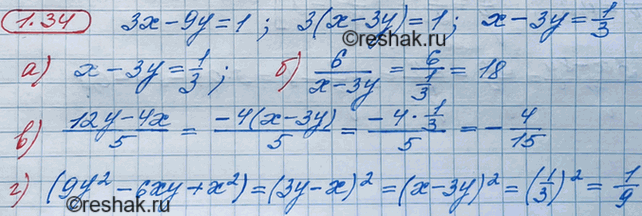 1.34 3x-9y=1; 3(x-3y)=1; x-3y=1/3
©reshak.ru
а) x-3y=1/3; б) 6/(x-3y)=6/(1/3)=18
в) (12y-4x)/5=(-4(x-3y))/5=(-4·1/3)/5=-4/15
г) (9y²-6xy+x²)=(3y-x)²=(x-3y)²=(1/3)²=1/9
©reshak.ru